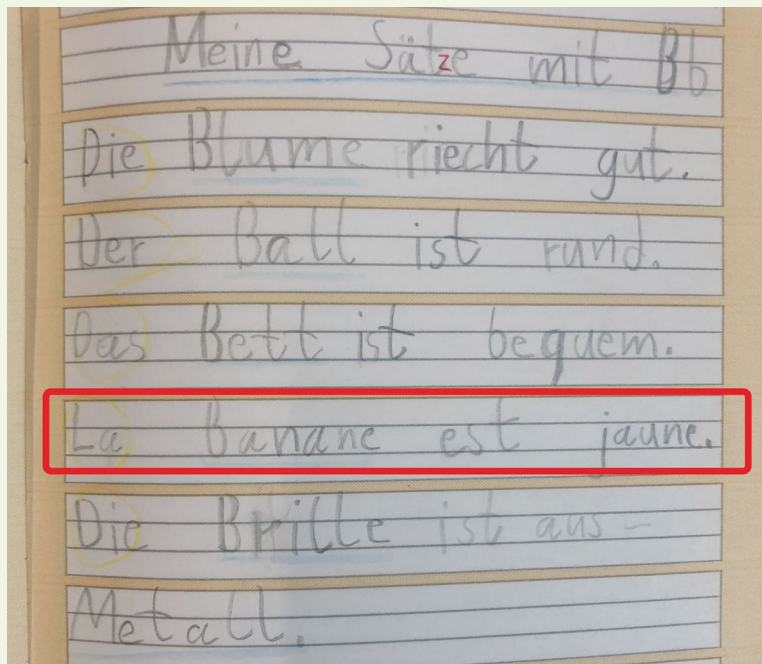 Meine Sätze mit Bb
Die Blume riecht gut.
Der Ball ist rund.
Das Bett ist bequem.
La Banane est jaune.
Die Brille ist aus-
Metall.